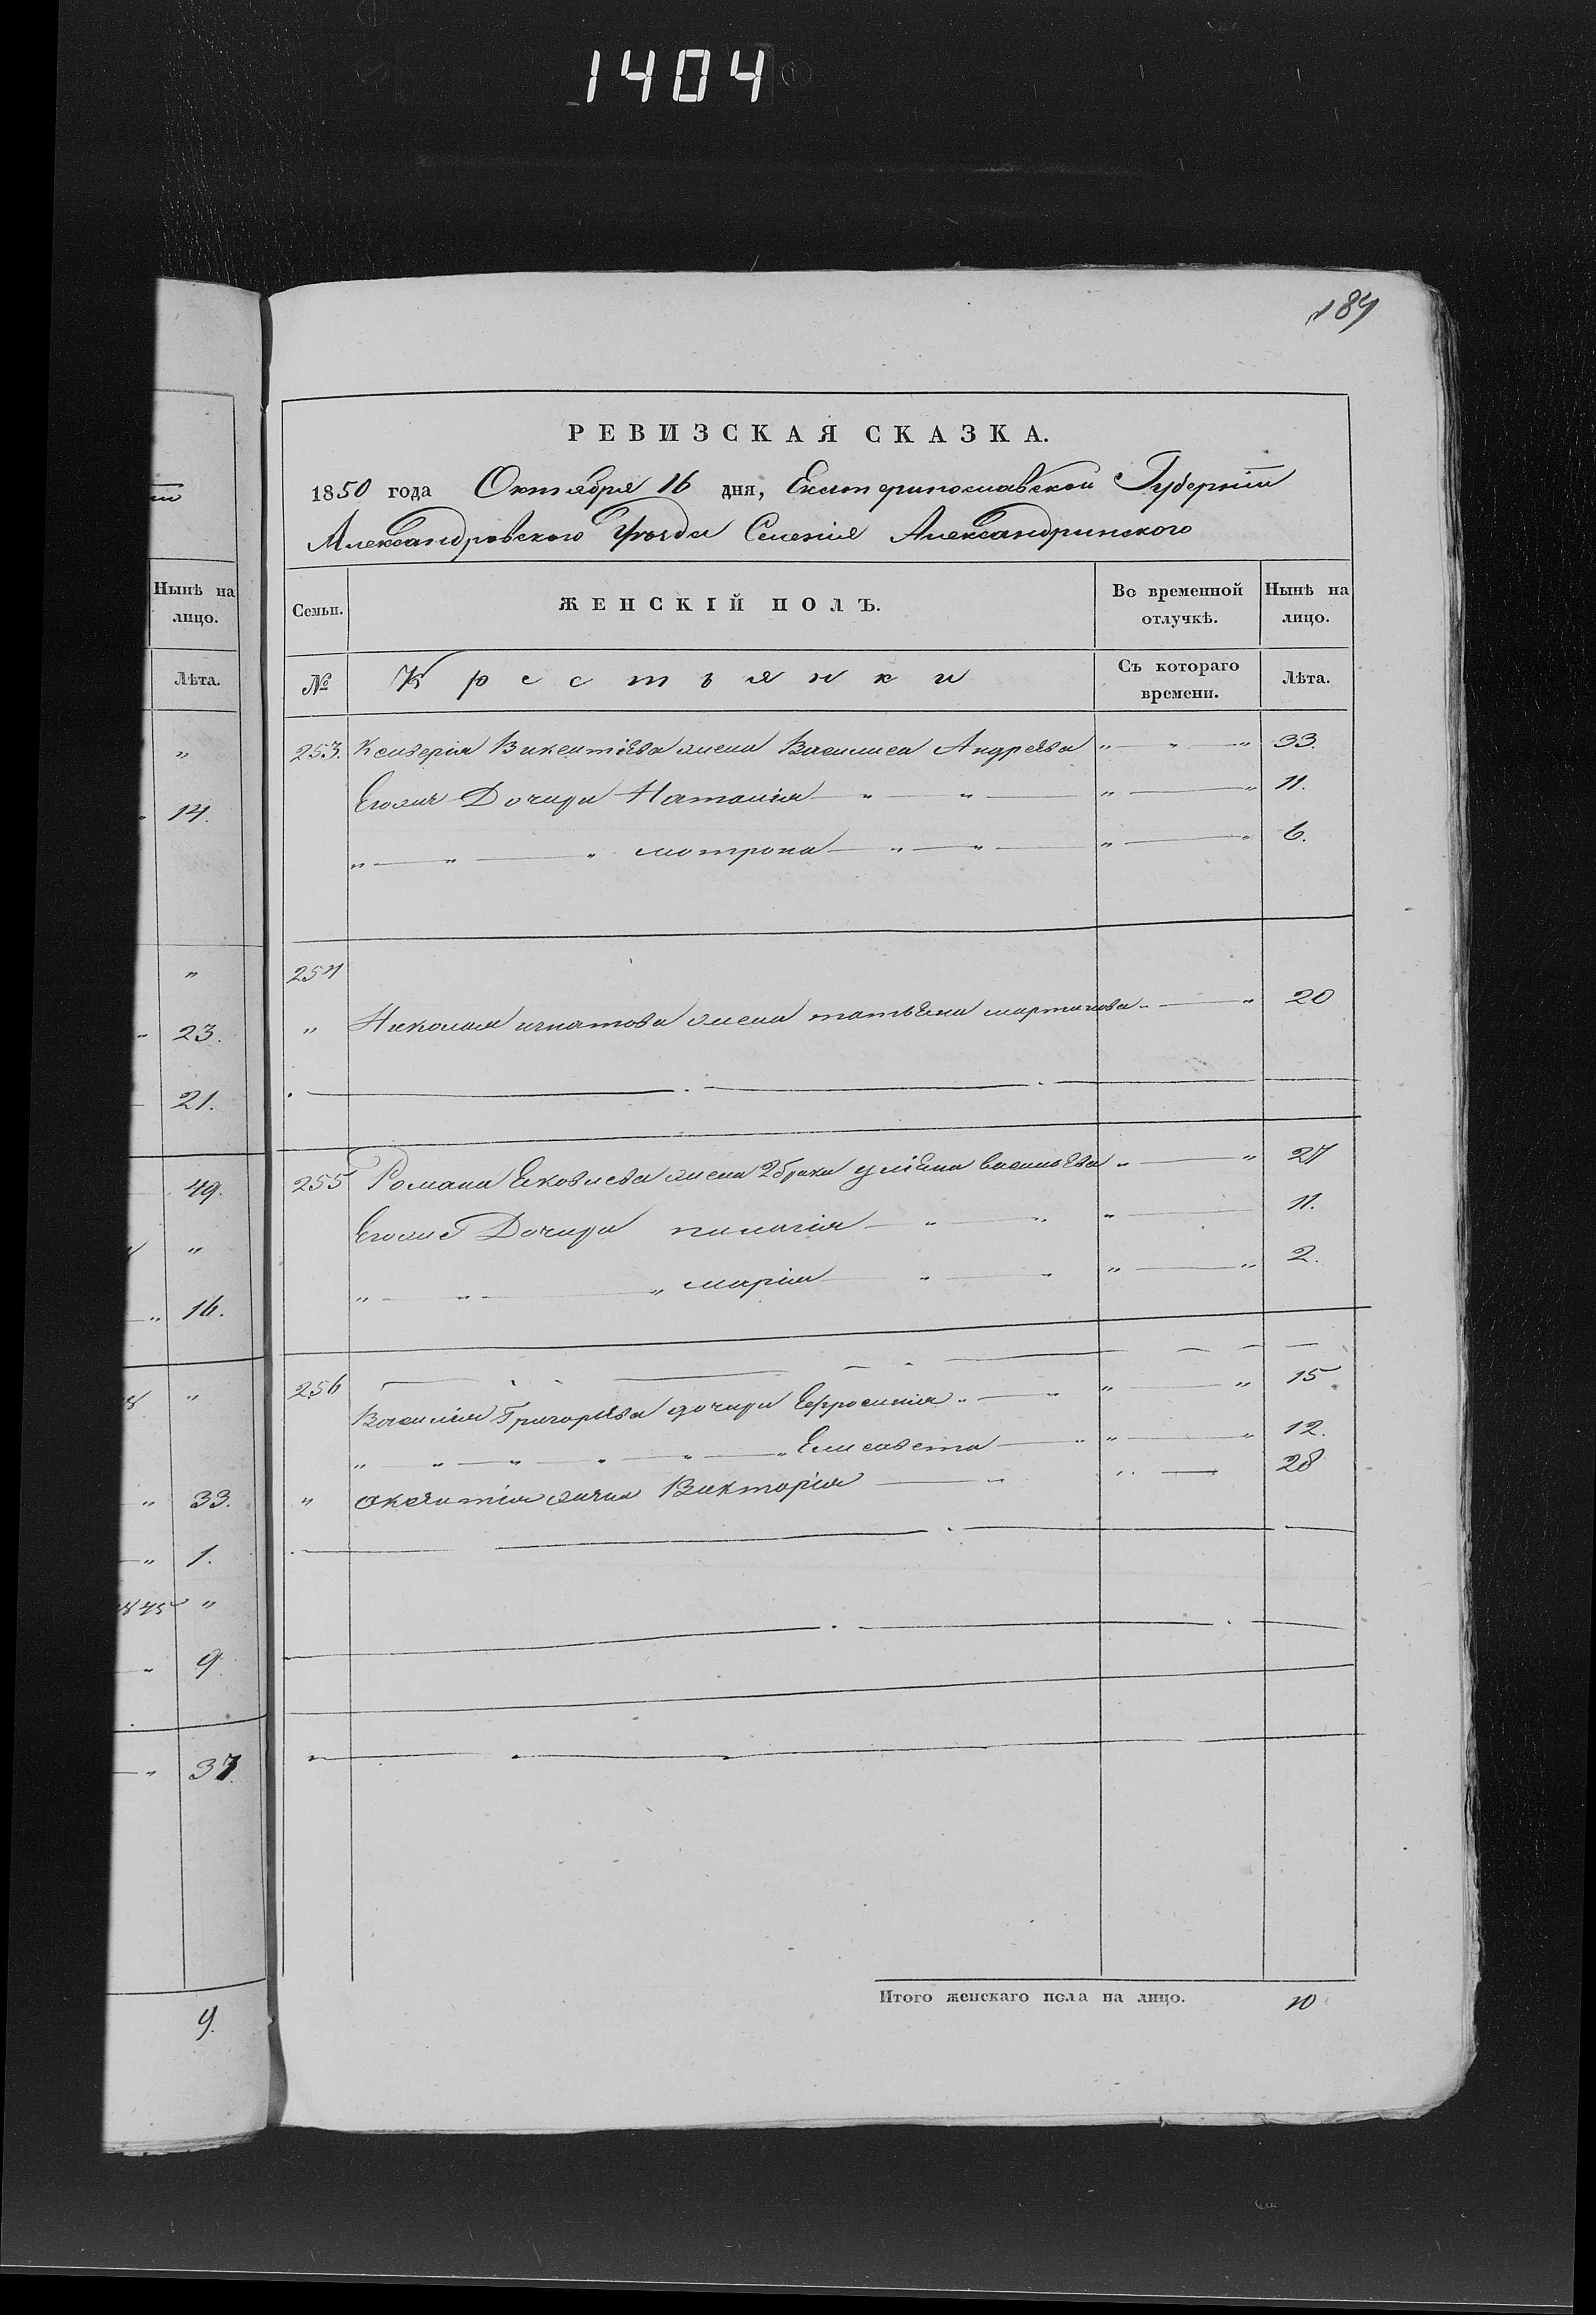 1404
189
РЕВИЗСКАЯ СКАЗКА.
1850 года Октября 16 дня, Екатеринославской Губерніи
Александровского Уѣзда Селенія Александринского
Семьи. ЖЕНСКІЙ ПОЛЪ. Во временной отлучкѣ. Нынѣ на лицо.
№ Крестьянки Съ котораго времени. Лѣта.
253. Викентіева жена Василиса Андреева „ — „ — „ 33.
Егоже Дочери Наталія — „ — „ — „ — „ 11.
„ — „ — „ мотрона — „ — „ — „ — „ 6.
254
„ Николая игнатова жена татьяна мартинова „ — „ 20
255 Романа Яковлева жена 2 брака уліяна васильева „ — „ 27
Егоже Дочери пилагія — „ — „ „ — 11.
„ — „ — „ марія — „ — „ „ — „ 2.
256
Василія Григорьева дочери Ефросинія „ — „ „ — „ 15.
„ — „ — „ — „ — „ — „ Елисавета — „ „ — „ 12.
„ жена Викторія — „ „ — 28
Итого женскаго пола на лицо. 10
Нынѣ на лицо.
Лѣта.
„
14.
„
23.
21.
49.
„
16.
„
33.
1.
„
9.
37.
9.